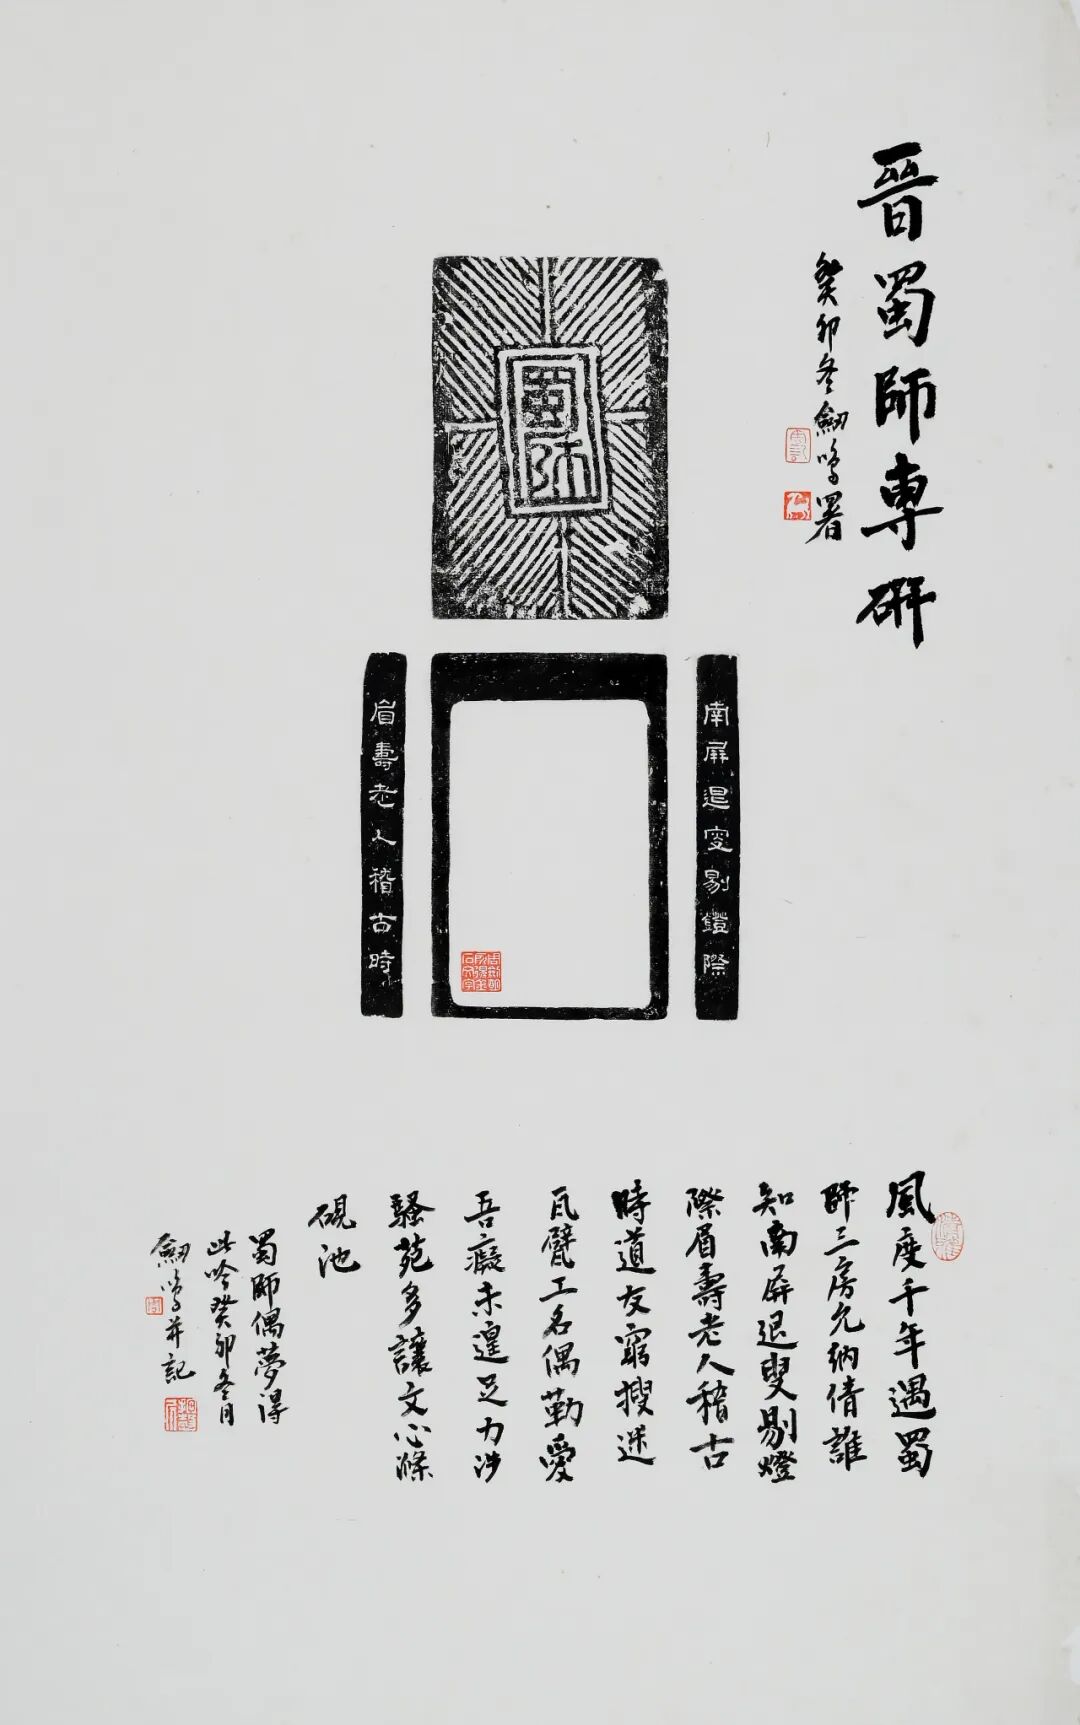 晉蜀師專硏
癸卯冬劍鳴署
蜀師
南屏退叟剔鐙際
眉壽老人稽古時
風度千年遇蜀
師三房允納倩誰
知南屏退叟剔燈
際眉壽老人稽古
時道友窮搜迷
瓦甓工名偶勒愛
吾癡未遑足力涉
騷苑多讓文心滌
硯池
蜀師偶夢得
此吟癸卯冬月
劍鳴并記